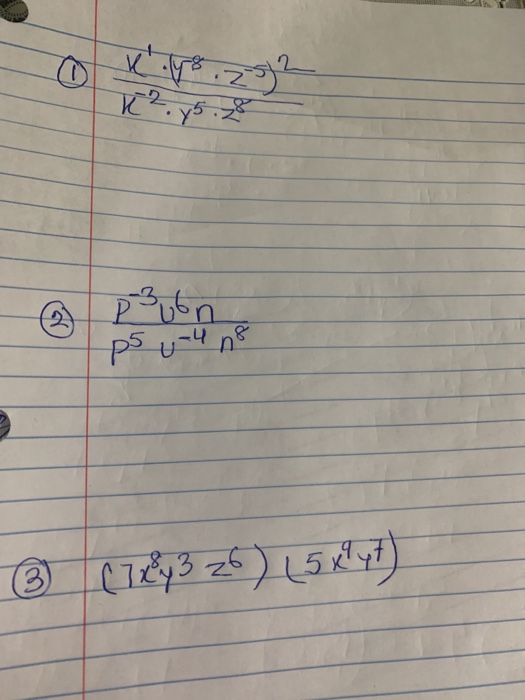 ① x¹ · (y⁸ · z⁻⁵)²
x⁻² · y⁵ · z⁸
② p⁻³ u⁶ n
p⁵ u⁻⁴ n⁸
③ (7x⁸y³ z⁶) (5x⁹y⁷)